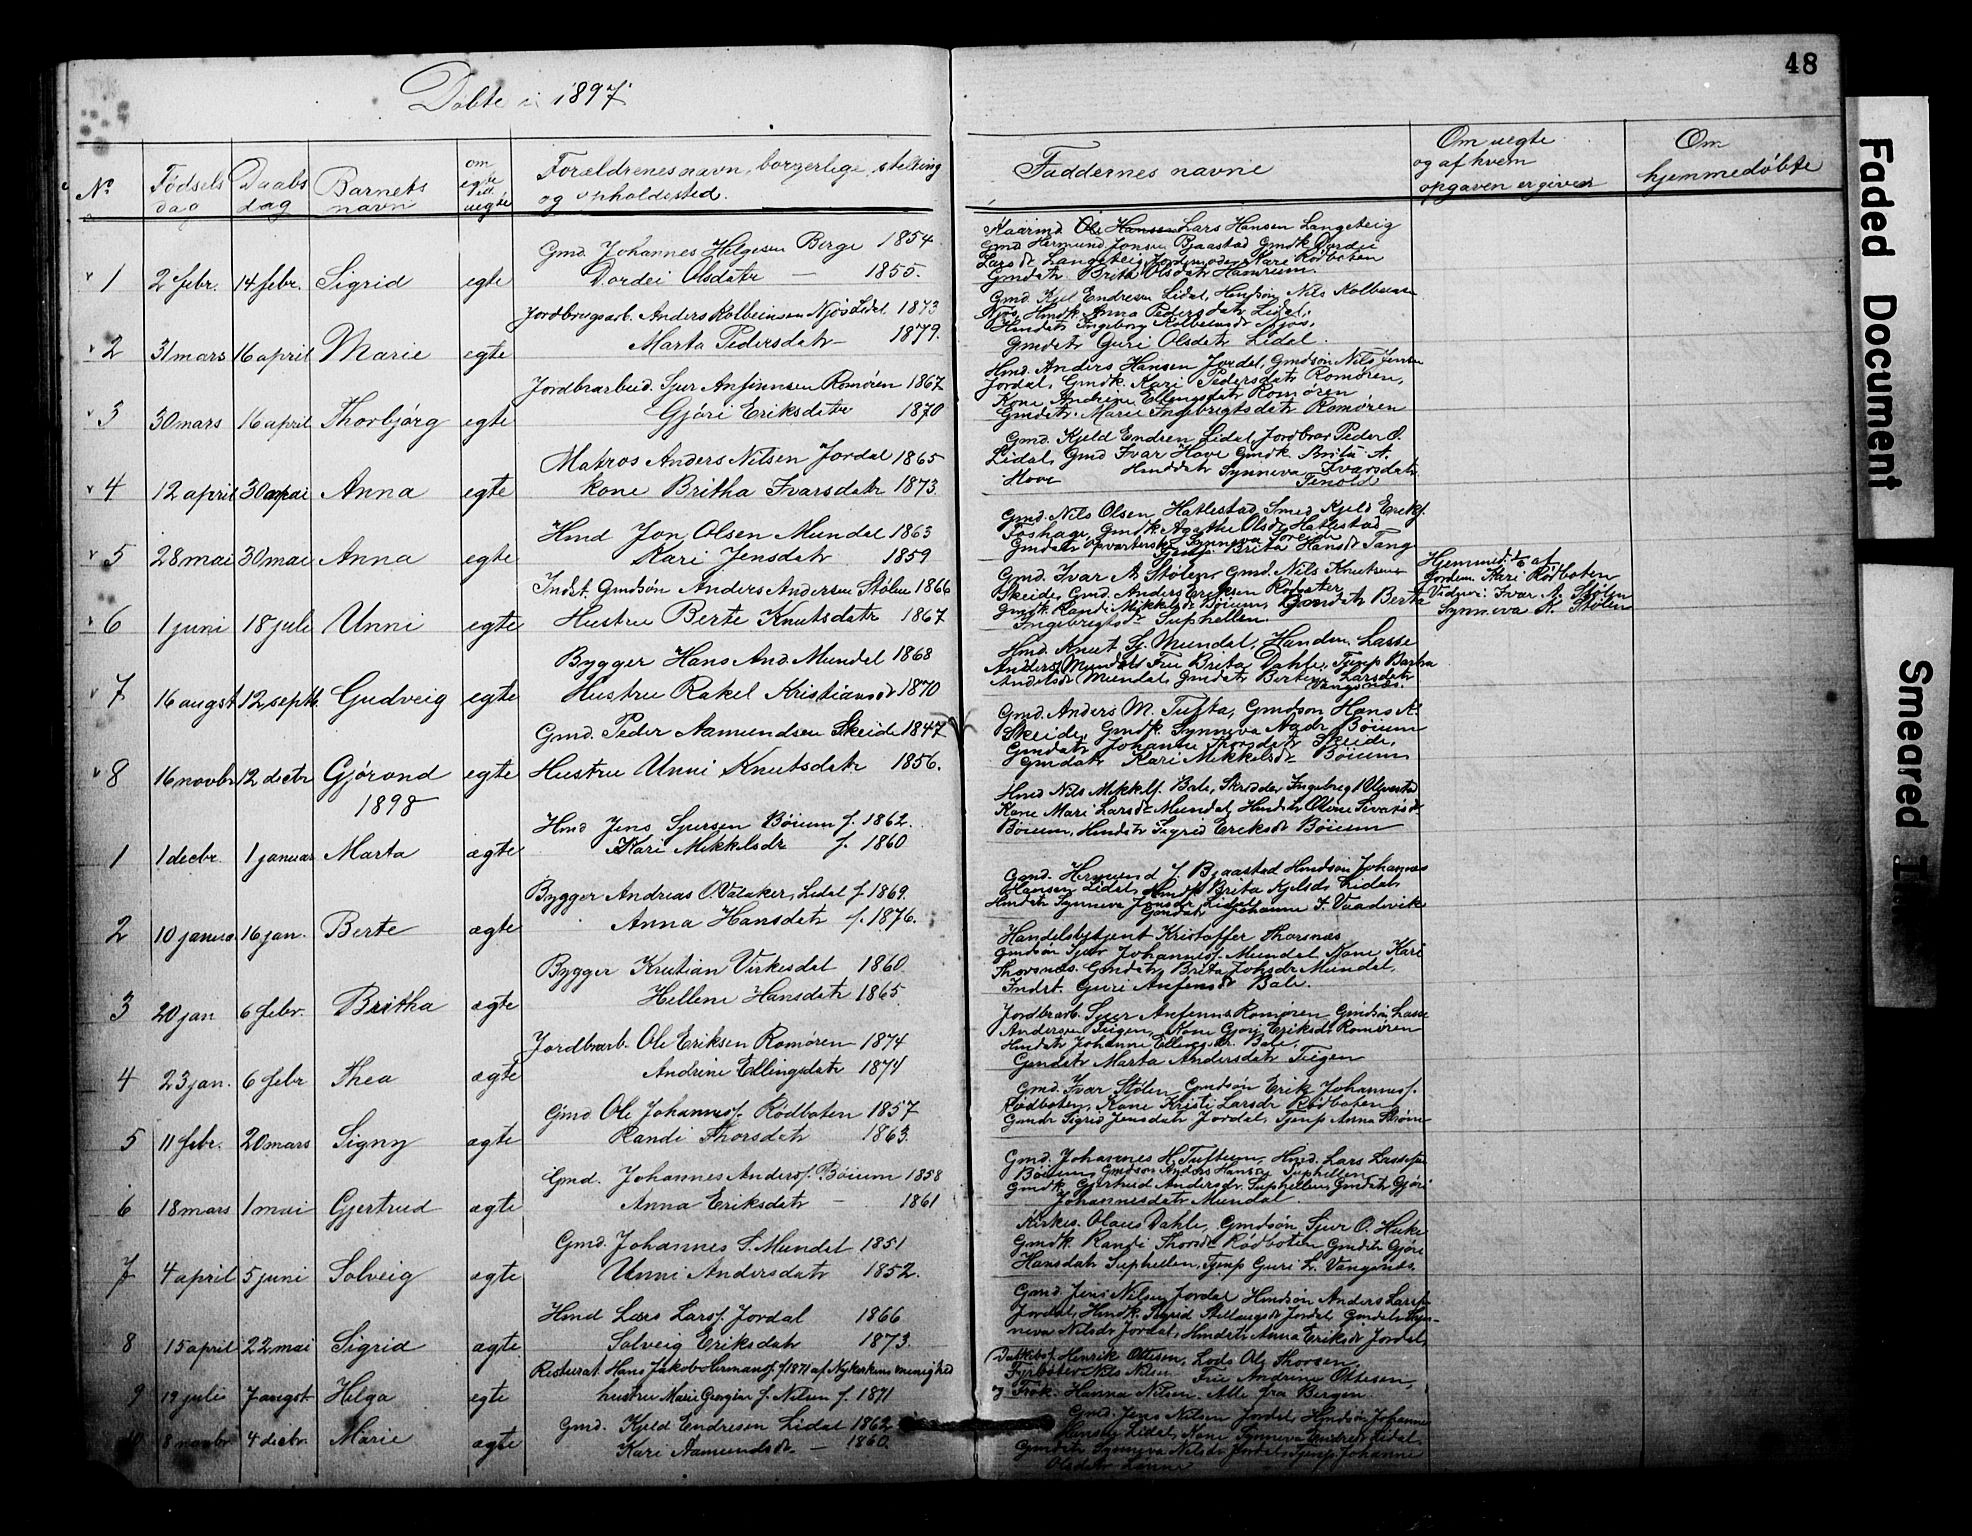 48
Døbte i 1897
No
Fødsels dag
Daabs dag
Barnets navn
om egte ell. uegte
Forældrenes navn, borgerlige stilling og opholdssted.
Faddernes navne
Om uegte og af hvem opgaven er given
Om hjemmedøbte
1 2 febr. 14 febr. Sigrid egte
Gmd. Johannes Helgesen Berge 1854.
Dordei Olsdatr — 1855.
Lars Hansen Langeteig
Gmd Hermund Jonsen Bjaastad Gmdk Dordei
Lars dr Langeteig Jordemoder Kari Rødboten
Gmdatr Brita Olsdatr Hamrum.
2 31 mars 16 april Marie egte
Jordbrugsarb. Anders Kolbeinsen Njøs Lidal 1873
Marta Pedersdatr — 1879.
Gmd. Kjel Endresen Lidal, Hmdsøn Nils Kolbeinsen
Njøs, Hmdk. Anna Pedersdatr Lidal,
Hmdatr Ingeborg Kolbeinsdr Njøs,
Gmdatr Guri Olsdatr Lidal.
3 30 mars 16 april Thorbjørg egte
Jordbrarbeid. Sjur Anfinnsen Romøren 1867
Gjøri Eriksdatr 1870
Hmd. Anders Hansen Jordal, Gmdsøn Nils Jensen
Jordal, Gmdk. Kari Pedersdatr Romøren,
Kone Andrine Ellingsdatr Romøren
Gmdatr. Marie Ingebrigtsdatr Romøren
4 12 april 30 mai Anna egte
Matros Anders Nilsen Jordal 1865
kone Britha Ivarsdatr 1873.
Gmd. Kjeld Endresen Lidal, Jordbrar Peder O.
Lidal, Gmd Ivar Hove Gmdk Brita A.
Hove Hmddatr Synneva Ivarsdatr
5 28 mai 30 mai Anna egte
Hmd Jon Olsen Mundal 1863
Kari Jensdatr 1859
Gmd. Nils Olsen Hatlestad, Smed Kjeld Eriks.
Foshage, Gmdk. Agathe Olsdr Hatlestad
Gmdatr Synneva
Brita Hansdr Tang
6 1 juni 18 juli Unni egte
Indst. Gmdsøn Anders Andersen Stølen 1866
Hustru Berte Knutsdatr 1867
Gmd. Ivar A. Stølen, Gmd. Nils Knutsen
Skeide, Gmd. Anders Eriksen
Gmdk. Randi Mikkelsdr Bøium, Gmdatr Berta
Ingebrigtsdr Suphellen.
Hjemmed. 1/6 af
Jordem. Kari Rødboten
Vidner: Ivar A. Stølen
Synneva K. Stølen
7 16 augst 12 septb. Gudveig egte
Bygger Hans And. Mundal 1868
Hustru Rakel Kristiansdr 1870
Hmd. Knut Sj. Mundal, Handm. Lasse
Anders. Mundal Fru Brita Dahle, Tjenp Bertha
Andersdr Mundal, Gmdatr Berta Larsdatr
Vangsnes.
8 16 novbr 12 dectr Gjørond egte
Gmd. Peder Aamundsen Skeide 1847
Hustru Unni Knutsdatr 1856.
Gmd. Anders M. Tufta, Gmdsøn Hans A.
Skeide, Gmdk. Synneva Bøium
Gmdatr Johanne Thorsdatr Skeide,
Gmdatr Kari Mikkelsdr Bøium
1898
1 1 decbr. 1 januar Marta ægte
Hmd Jens Sjursen Bøium f. 1862.
Kari Mikkelsdr f. 1860
Hmd Nils Mikkels. Bale, Skrædder Ingebrigt Ulvestad
Kone Mari Larsdr Mundal, Hmdatr
Bøium, Hmdatr Sigrid Eriksdr Bøium
2 10 januar 16 jan. Berte ægte
Bygger Andreas O. Vataker, Lidal f. 1869.
Anna Hansdatr f. 1876.
Gmd. Hermund J. Bjaastad Hmdsøn Johannes
Hansen Lidal, Hmdk Brita Kjelsdr Lidal,
Hmdatr Synneva Jonsdr Lidal
Gmdatr Johanne I. Vaadevik
3 20 jan 6 febr. Britha ægte
Bygger Kristian Virkesdal 1860
Hellene Hansdatr 1865.
Handelsbetjent Kristoffer Thorsnæs
Gmdsøn Sjur Johannes. Mundal, Kone Kari
Thorsnæs. Gmdatr Brita Johsdr Mundal,
Indst. Guri Anfinsdr Bale.
4 23 jan. 6 febr Thea ægte
Jordbrarb. Ole Eriksen Romøren 1874
Andrine Ellingsdatr 1874
Jordbrarb. Sjur Anfinns. Romøren Gmdsøn Lasse
Andersen Teigen, Kone Gjøri Eriksdr Romøren
Hmdatr Johanne Ellingsdr. Bale,
Gmdatr Marta Andersdatr Teigen
5 11 febr. 20 mars Signy ægte
Gmd Ole Johanness. Rødboten 1857
Randi Thorsdatr 1863.
Gmd. Ivar Stølen, Gmdsøn Erik Johanness.
Rødboten, Kone Kristi Larsdr Rødboten
Gmdr Sigrid Jensdatr Jordal, Tjenp Anna
6 18 mars 1 mai Gjertrud ægte
Gmd. Johannes Anders. Bøium 1858
Anna Eriksdatr — 1861
Gmd. Johannes H. Tufteum, Hmd. Lars
Bøium, Gmdsøn Anders Hansen Suphellen
Gmdk Gjertrud Andersdr. Suphellen, Gmdatr Gjøri
Johannesdatr Mundal
7 4 april 5 juni Solveig ægte
Gmd. Johannes S. Mundal 1851
Unni Andersdatr 1852.
Kirkes. Olaus Dahle, Gmdsøn Sjur O. Huke
Gmdk. Randi Thorsdr Rødboten Gmdatr Gjøri
Hansdatr Suphellen, Tjenp Guri L. Vangsnes.
8 15 april 22 mai Sigrid ægte
Hmd Lars Lars. Jordal 1866
Solveig Eriksdatr 1873.
Gmd. Jens Nilsen Jordal Hmdsøn Anders Larsen
Jordal, Hmdk. Sigrid Jordal Gmdatr Syn-
neva Nilsdr Jordal, Hmdatr Anna Eriksdr Jordal,
9 19 juli 7 augst. Helga egte
Resturat. Hans Jakob Hermans. f. 1871 af Nykirkens menighed
hustru Marie Gurgine f. Nilsen f. 1871
Henrik Ottesen, Lods Ole Thorsen,
Fyrbøter Nils Nilsen Fru Andrine Ottesen,
og Frøk. Hanna Nilsen. Alle fra Bergen
10 8 novbr 4 decbr. Marie ægte
Gmd. Kjeld Endresen Lidal 1862
Kari Aamundsdr. — 1860.
Gmd. Jens Nilsen Jordal, Hmdsøn Johannes
Hansen Lidal, Kone Synneva Endresdr Lidal.
Gmdatr Synneva Nilsdr Jordal, Tjenp. Johanne
Olsdatr
Faded Document
Smeared